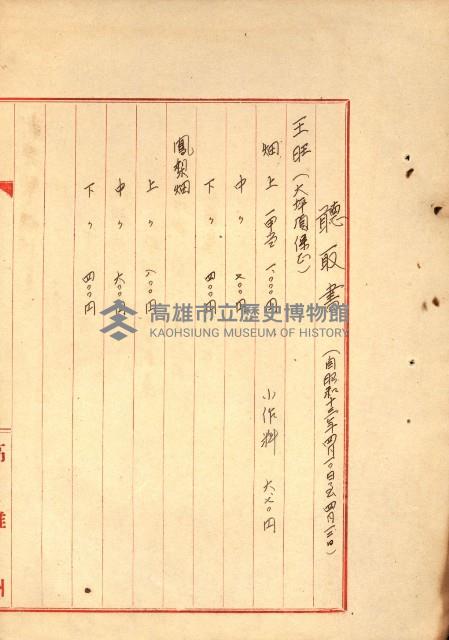 聽取書 (自昭和十三年四月一〇日至四月一三日)
王旺 (大坪頂保正)
畑 上 一甲当 一、〇〇〇円 小作料
中〃 七〇〇円
下〃 四〇〇円
鳳梨畑
上〃 八〇〇円
中〃 六〇〇円
下〃 四〇〇円
高雄州
高雄市立歷史博物館
KAOHSIUNG MUSEUM OF HISTORY